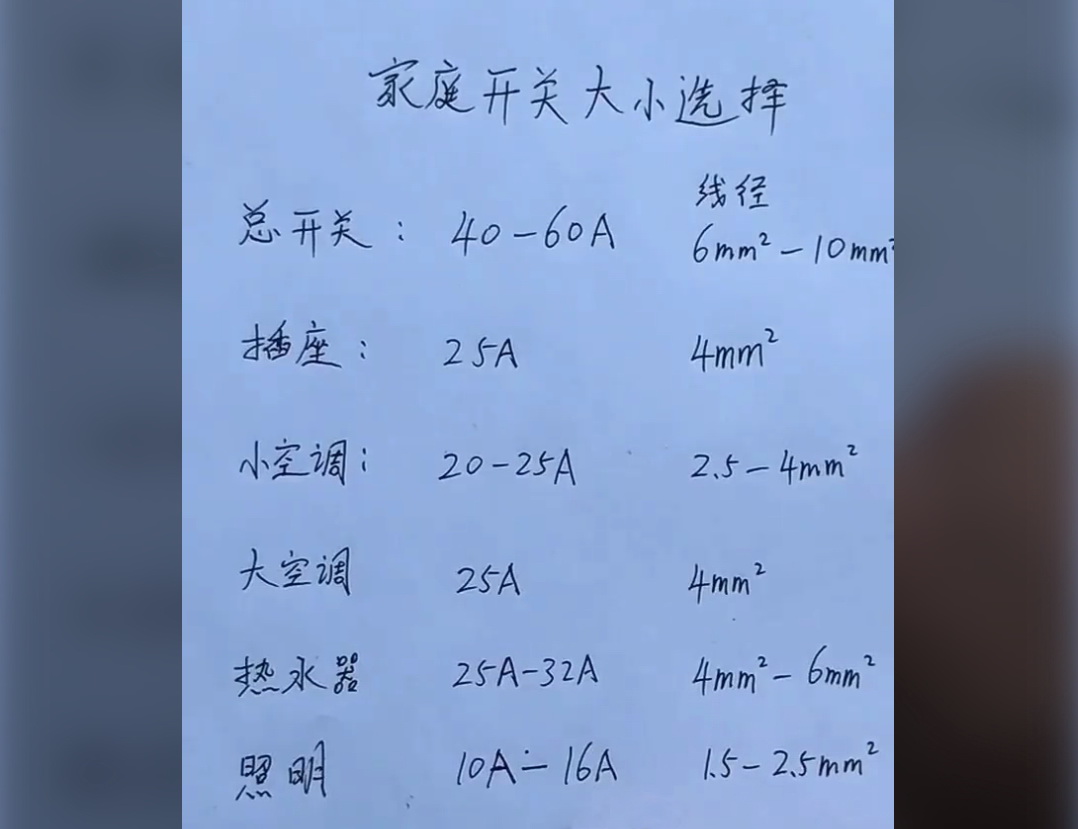 家庭开关大小选择
线径
总开关: 40-60A 6mm²-10mm²
插座: 25A 4mm²
小空调: 20-25A 2.5-4mm²
大空调 25A 4mm²
热水器 25A-32A 4mm²-6mm²
照明 10A-16A 1.5-2.5mm²